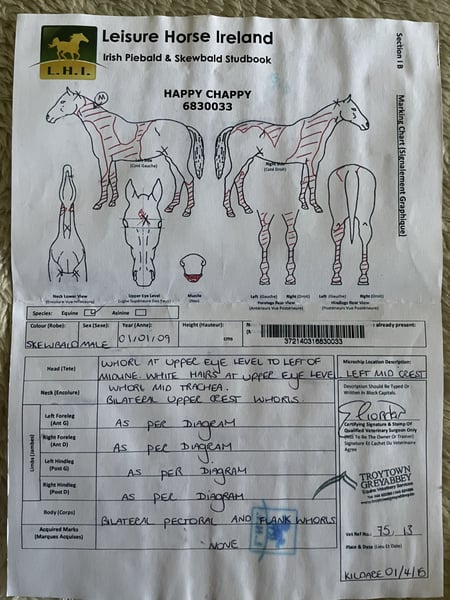 Leisure Horse Ireland
Irish Piebald & Skewbald Studbook
L.H.I.
Section I B
HAPPY CHAPPY
6830033
Marking Chart (Signalement Graphique)
M
(Coté Gauche)
(Coté Droit)
Neck Lower View
Upper Eye Level
Muzzle
Left (Gauche) Right (Droit)
Forelegs Rear View
Left (Gauche) Right (Droit)
Hindlegs Rear View
Species: Equine Asinine
Colour (Robe): Sex (Sexe): Year (Anne): Height (Hauteur): already present:
SKEWBALD MALE 01/01/09 cms
372140316830033
Head (Tete)
WHORL AT UPPER EYE LEVEL TO LEFT OF
MIDLINE. WHITE HAIRS AT UPPER EYE LEVEL
Neck (Encolure)
WHORL MID TRACHEA.
BILATERAL UPPER CREST WHORLS.
Limbs (Jambes)
Left Foreleg
(Ant G)
AS PER DIAGRAM
Right Foreleg
(Ant D)
AS PER DIAGRAM
Left Hindleg
(Post G)
AS PER DIAGRAM
Right Hindleg
(Post D)
AS PER DIAGRAM
Body (Corps)
BILATERAL PECTORAL AND FLANK WHORLS
Acquired Marks
(Marques Acquises)
NONE
Microchip Location Description:
LEFT MID CREST
Description Should Be Typed or
Written in Block Capitals.
Certifying Signature & Stamp Of
Qualified Veterinary Surgeon Only
(Not To Be The Owner Or Trainer)
Signature Et Cachet Du Veterinaire
Agree
TROYTOWN
GREYABBEY
Equine Veterinary Services
Vet Ref No: 75, 13
Place & Date (Lieu Et Date)
KILDARE 01/4/15